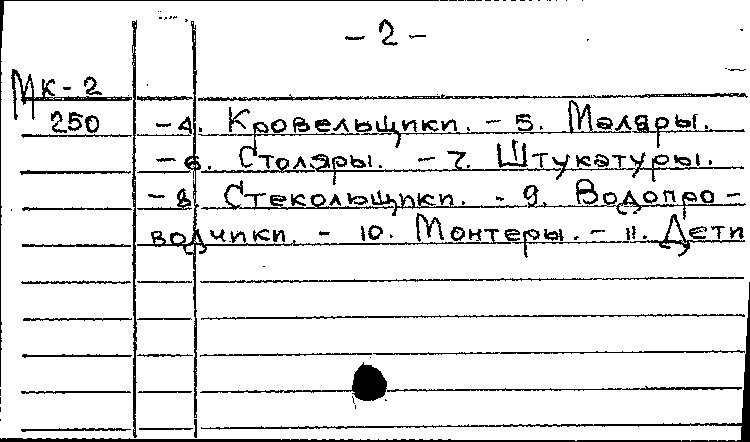 - 2 -
МК-2
250 - 4. Кровельщики. - 5. Маляры.
- 6. Столяры. - 7. Штукатуры.
- 8. Стекольщики. - 9. Водопро-
водчики. - 10. Монтеры. - 11. Дети